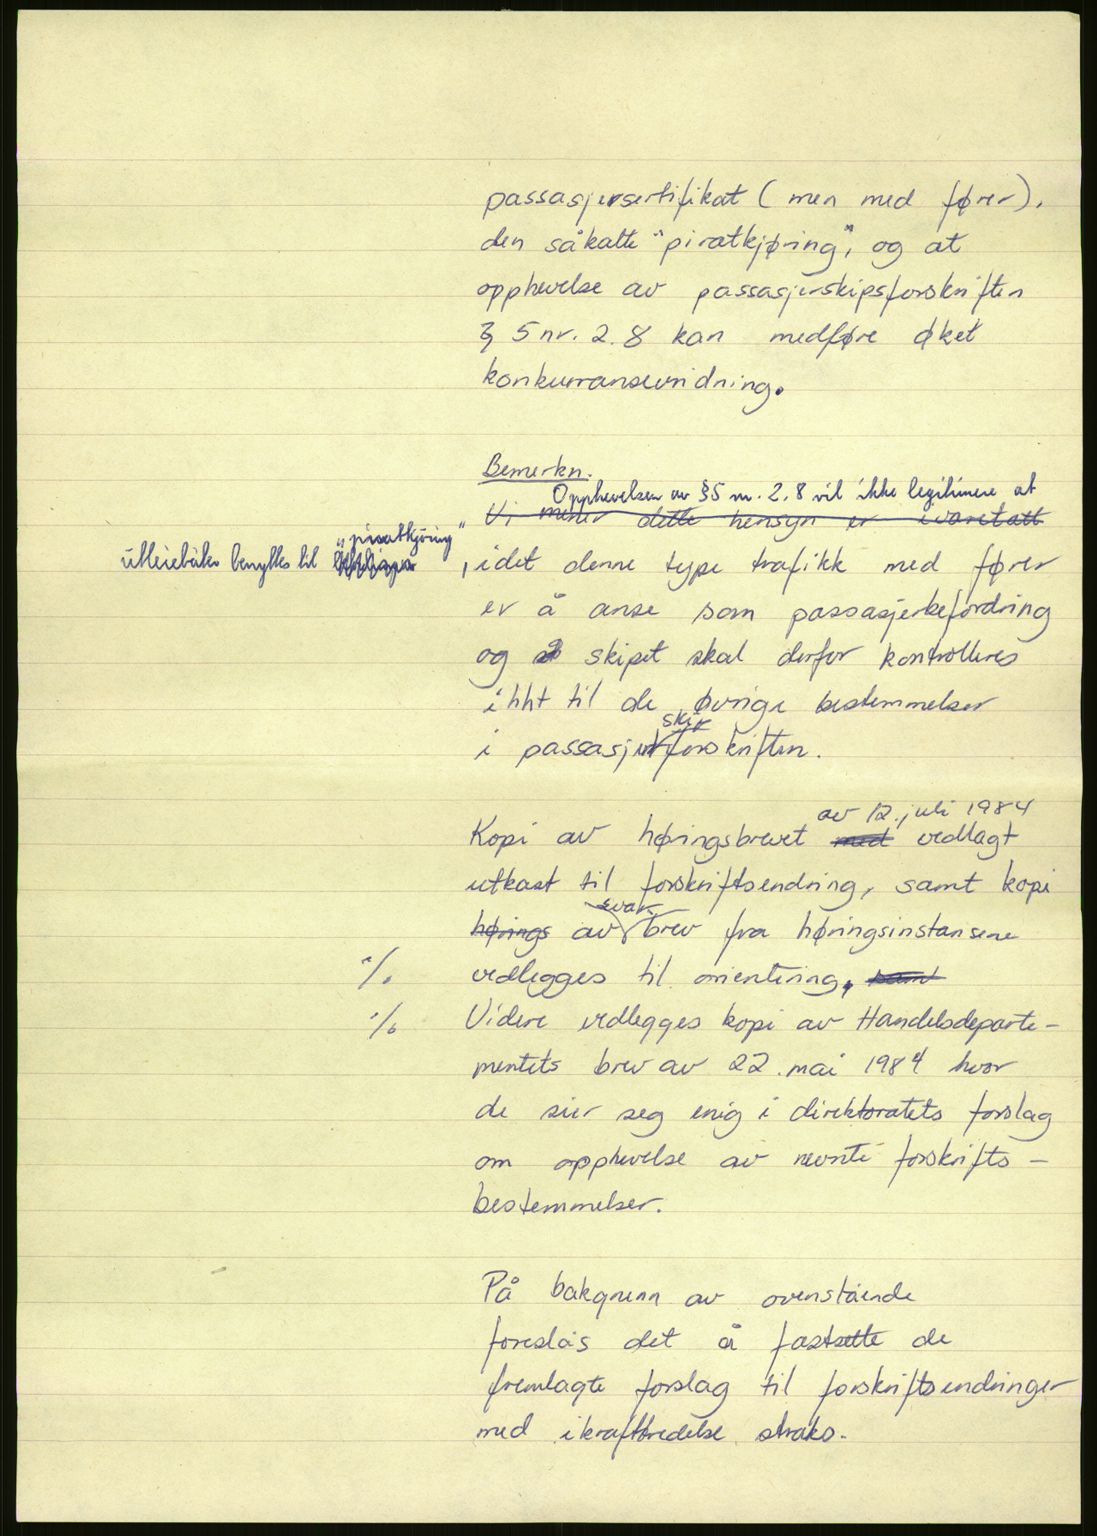 passasjersertifikat (men med fører),
den såkalte "piratkjøring", og at
opphevelse av passasjerskipsforskriften
§ 5 nr. 2.8 kan medføre øket
konkurransevridning.
Bemerkn.
Opphevelsen av §5 nr. 2.8 vil ikke legitimere at
Vi mener dette hensyn er ivaretatt
utleiebåter benyttes til "piratkjøring"
, idet denne type trafikk med fører
er å anse som passasjerbefordring
og skipet skal derfor kontrolleres
i hht til de øvrige bestemmelser
i passasjerskipforskriften.
Kopi av høringsbrevet med av 12. juli 1984 vedlagt
utkast til forskriftsendring, samt kopi
hørings av svarbrev fra høringsinstansene
·/. vedlegges til orientering, samt
·/. Videre vedlegges kopi av Handelsdeparte-
mentets brev av 22. mai 1984 hvor
de sier seg enig i direktoratets forslag
om opphevelse av nevnte forskrifts-
bestemmelser.
På bakgrunn av ovenstående
foreslås det å fastsette de
fremlagte forslag til forskriftsendringer
med ikrafttredelse straks.